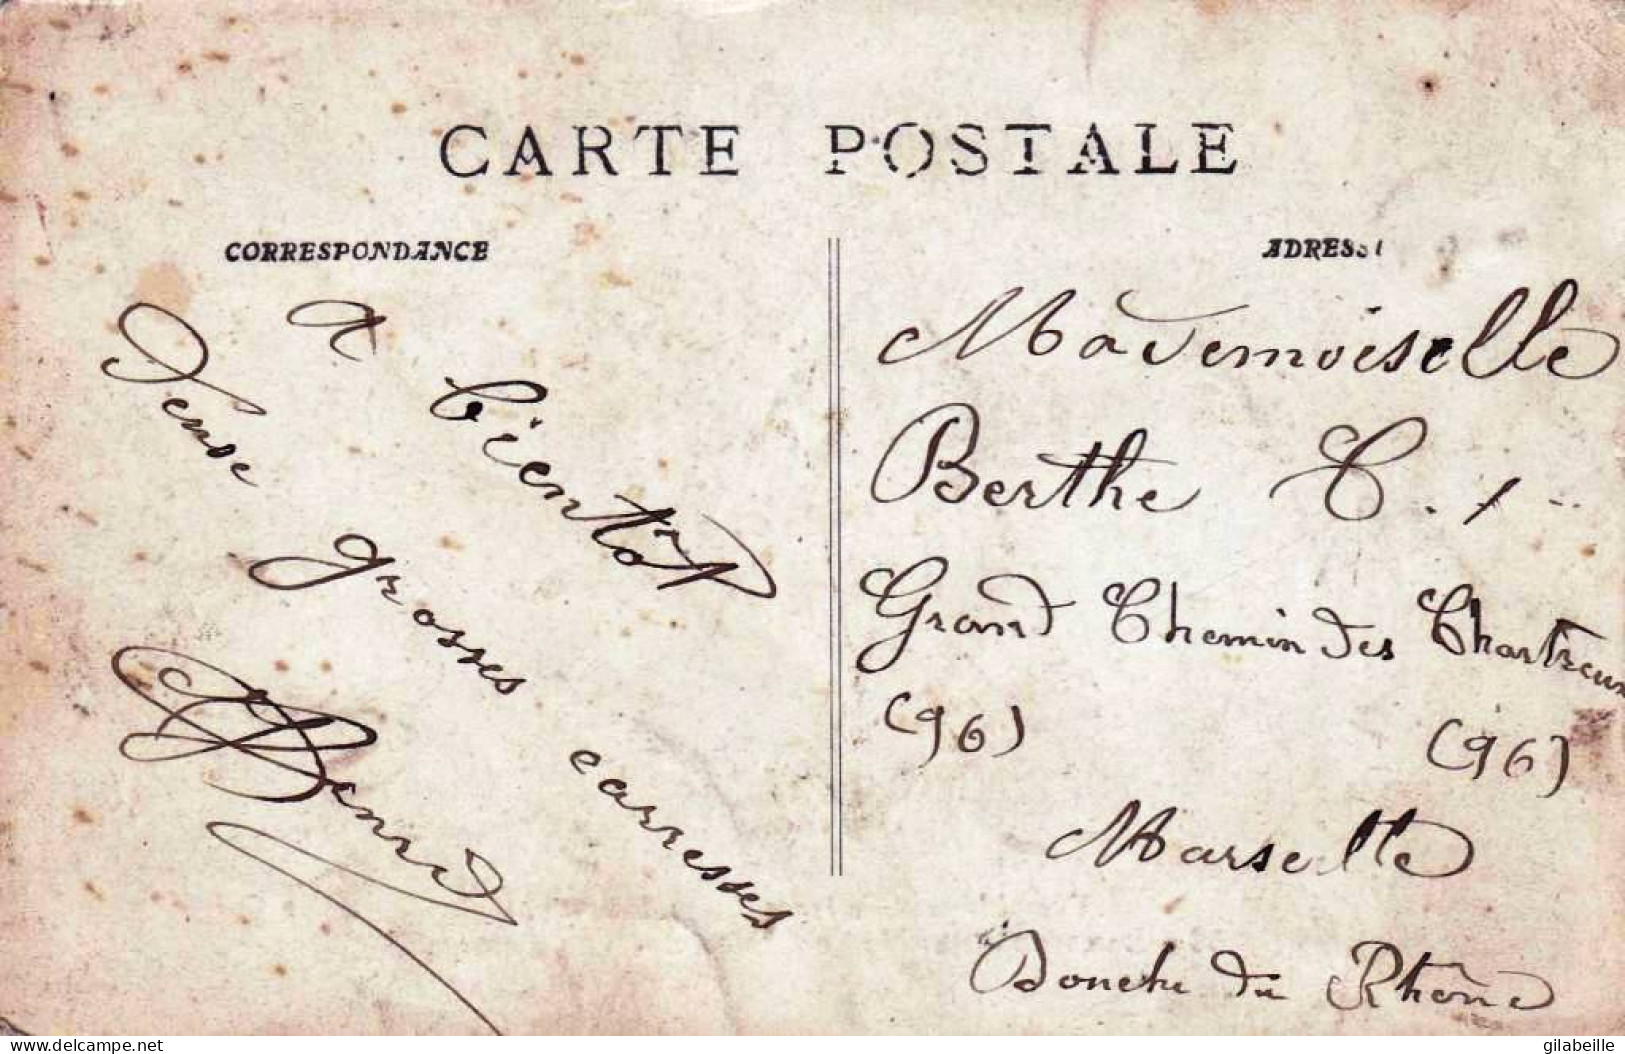 CARTE POSTALE
CORRESPONDANCE
ADRESSE
A bientôt
grosses caresses
Mademoiselle
Berthe C.
Grand Chemin des Chartreux
(96) (96)
Marseille
Bouche du Rhône
delcampe.net
gilabeille